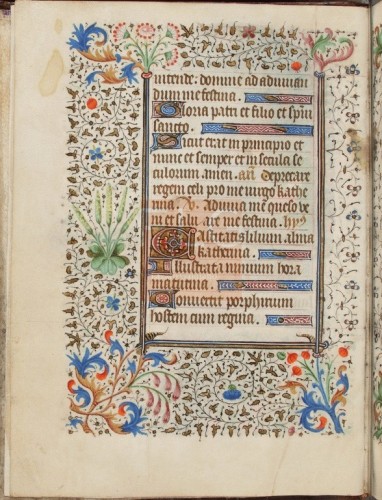 intende. domine ad adiuuan
dum me festina.
Gloria patri et filio et spiri
sancto.
Sicut erat in principio et
nunc et semper et in secula se
culorum amen. an̄. Deprecare
regem celi pro me uirgo kathe
rina. v. Adiuua me queso ve
ni et salu are me festina. hyp̄
Castitatis lilium alma
katherina.
Illustrata nimium hora
matutina.
Conuertit porphirium
hostem cum regina.